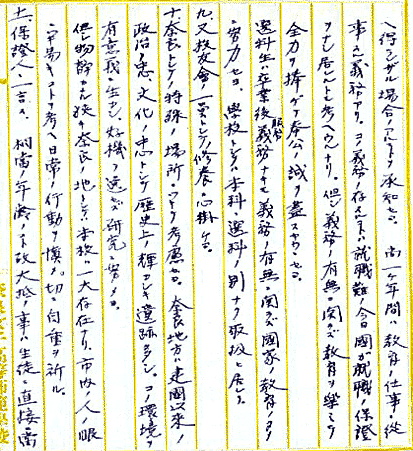 ヘ得ザル場合アルコトヲ承知セヨ。尚一ケ年間ハ教育ノ仕事ニ従
事スル義務アリ。コノ義務ノ存スルハ就職難ノ今日国ガ就職ヲ保證
シテ居ルトモ考ヘラルナリ。但シ義務ノ有無ニ関ラズ教育ヲ学ビタル
全力ヲ捧ゲテ奉公ノ誠ヲ盡スベキナリ。
選科生ハ卒業後服務義務ナキモ義務ノ有無ニ関ラズ国家ノ教育ノタメ
ニ努力セヨ。学校トシテハ本科、選科ノ別ナク取扱ヒ居レリ。
九、又校友會ノ一員トシテノ修養ニ心掛ケヨ。
十、奈良トシテノ特殊ノ場所ニアルヲ考慮セヨ。奈良地方ハ建国以来ノ
政治ノ中心文化ノ中心トシテ歴史上ノ輝カシキ遺跡多シ。コノ環境ヲ
有意義ニ生カシ好機ヲ逸セズ研究ニ努メヨ。
但シ物静カナル狭キ奈良ノ地トシテ本校ハ一大存在ナリ。市内ノ人ノ眼
ニ ルコトヲ考ヘ日常ノ行動ヲ慎メ。切ニ自重ヲ祈ル。
十一、保證人ニ一言ス。相当ノ年齢ノ故大抵ノ事ハ生徒ニ直接当